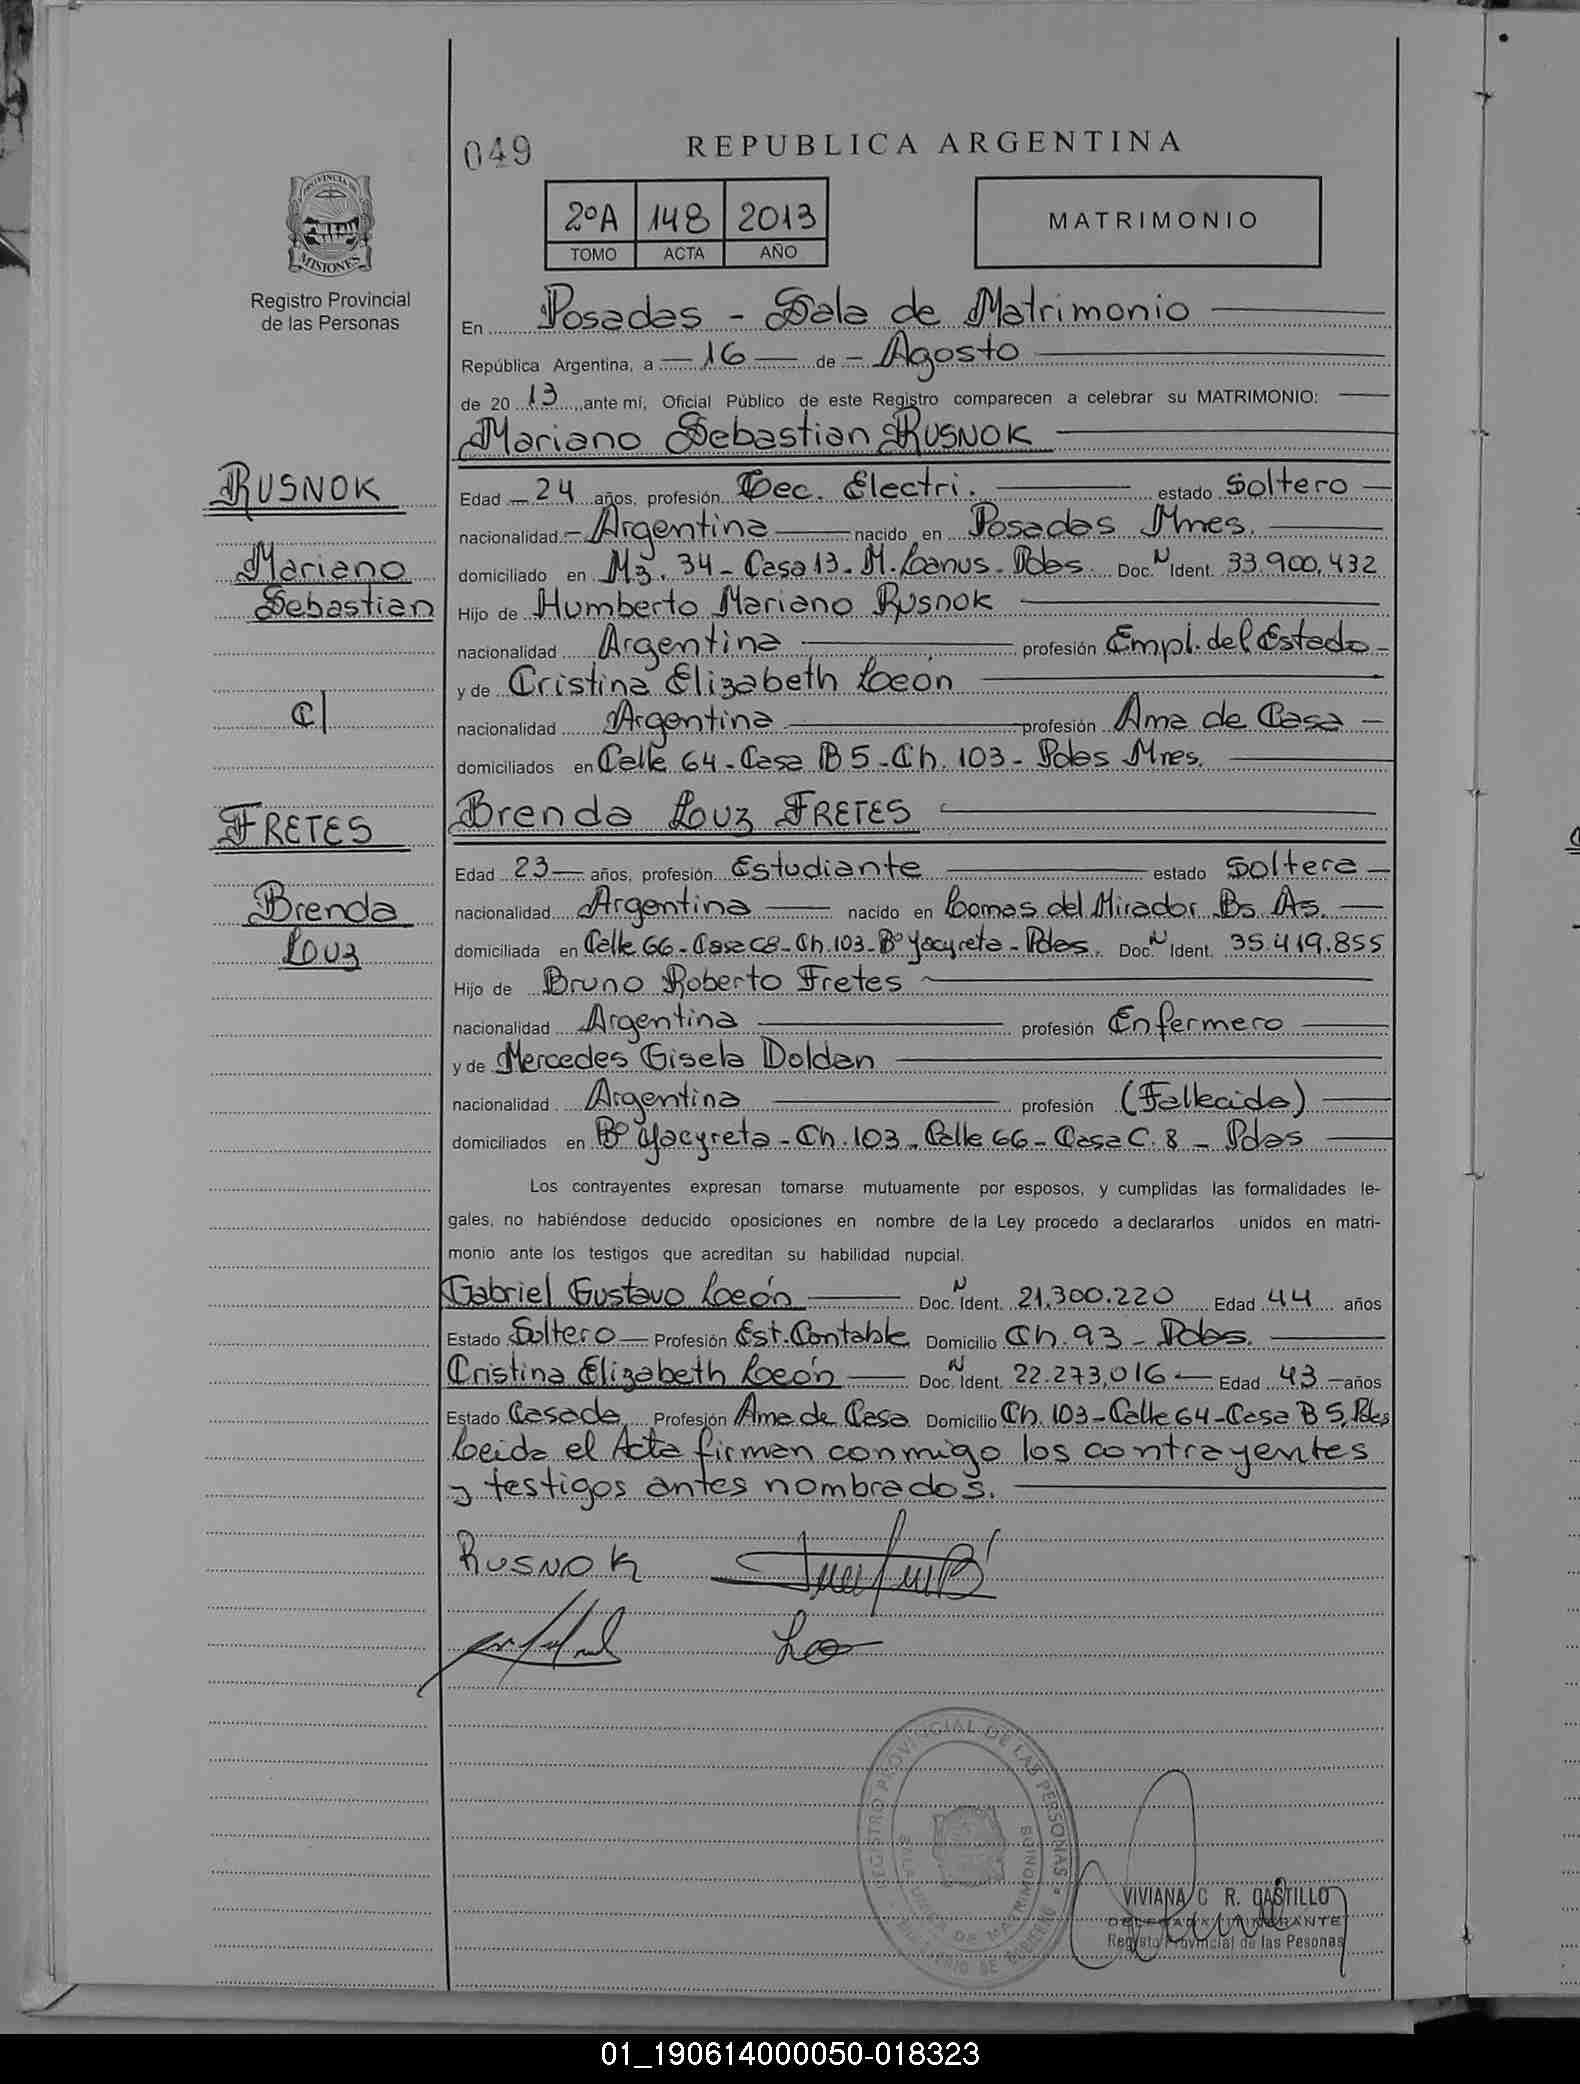 049
REPUBLICA ARGENTINA
2ºA 148 2013
TOMO ACTA AÑO
MATRIMONIO
PROVINCIA DE
MISIONES
Registro Provincial
de las Personas
En Posadas - Sala de Matrimonio
República Argentina, a 16 de Agosto
de 20 13 ante mí, Oficial Público de este Registro comparecen a celebrar su MATRIMONIO:
Mariano Sebastian RUSNOK
RUSNOK
Mariano
Sebastian
C/
FRETES
Brenda
Luz
Edad 24 años, profesión Tec. Electri. estado Soltero
nacionalidad Argentina nacido en Posadas Mnes.
domiciliado en Mz. 34 - Casa 13 - M. Lanus - Pdas. Doc. N Ident. 33.900.432
Hijo de Humberto Mariano Rusnok
nacionalidad Argentina profesión Empl. del Estado
y de Cristina Elizabeth León
nacionalidad Argentina profesión Ama de Casa
domiciliados en Calle 64 - Casa B 5 - Ch. 103 - Pdas Mnes.
Brenda Luz FRETES
Edad 23 años, profesión Estudiante estado Soltera
nacionalidad Argentina nacido en Lomas del Mirador Bs. As.
domiciliada en Calle 66 - Casa C8 - Ch. 103 - Bº Yacyreta - Pdas. Doc. N Ident. 35.419.855
Hijo de Bruno Roberto Fretes
nacionalidad Argentina profesión Enfermero
y de Mercedes Gisela Doldan
nacionalidad Argentina profesión (Fallecida)
domiciliados en Bº Yacyreta - Ch. 103 - Calle 66 - Casa C. 8 - Pdas
Los contrayentes expresan tomarse mutuamente por esposos, y cumplidas las formalidades le-
gales, no habiéndose deducido oposiciones en nombre de la Ley procedo a declararlos unidos en matri-
monio ante los testigos que acreditan su habilidad nupcial.
Gabriel Gustavo León Doc. N Ident. 21.300.220 Edad 44 años
Estado Soltero Profesión Est. Contable Domicilio Ch. 93 - Pdas.
Cristina Elizabeth León Doc. N Ident. 22.273.016 Edad 43 años
Estado Casada Profesión Ama de Casa Domicilio Ch. 103 - Calle 64 - Casa B 5, Pdas
Leida el Acta firman conmigo los contrayentes
y testigos antes nombrados.
RUSNOK
REGISTRO PROVINCIAL DE LAS PERSONAS
DE MATRIMONIOS
VIVIANA C R. CASTILLO
Registro Provincial de las Pesonas
01_190614000050-018323